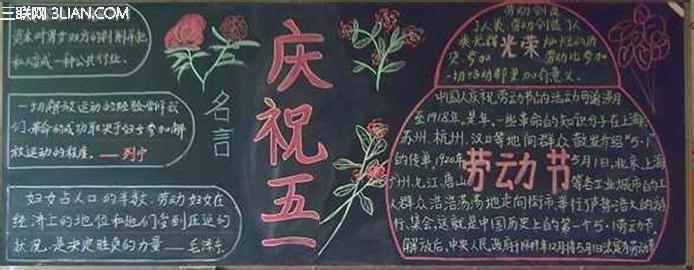 三联网 3LIAN.COM
名言
一切解放运动的经验告诉我
们，革命的成功取决于妇女参加解
放运动的程度。——列宁
妇女占人口的半数，劳动妇女在
经济上的地位和她们受到压迫的
状况，是决定胜负的力量——毛泽东
庆祝五一
劳动创造
光荣
劳动节
中国人庆祝劳动节的活动可追溯
至1918年，是年，一些革命的知识分子在上海
苏州、杭州、汉口等地向群众散发介绍“5·1”
的传单。1920年5月1日，北京、上海
广州、九江、唐山等各工业城市的工
人群众浩浩荡荡地走向街市、举行了声势浩大的游
行、集会，这就是中国历史上的第一个5·1劳动节。
解放后，中央人民政府于1949年12月将5月1日法定为劳动节